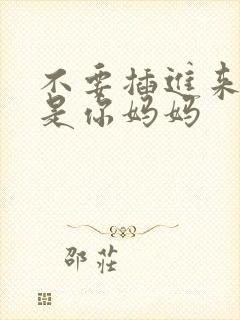 不要插进来
是你妈妈
邵莊